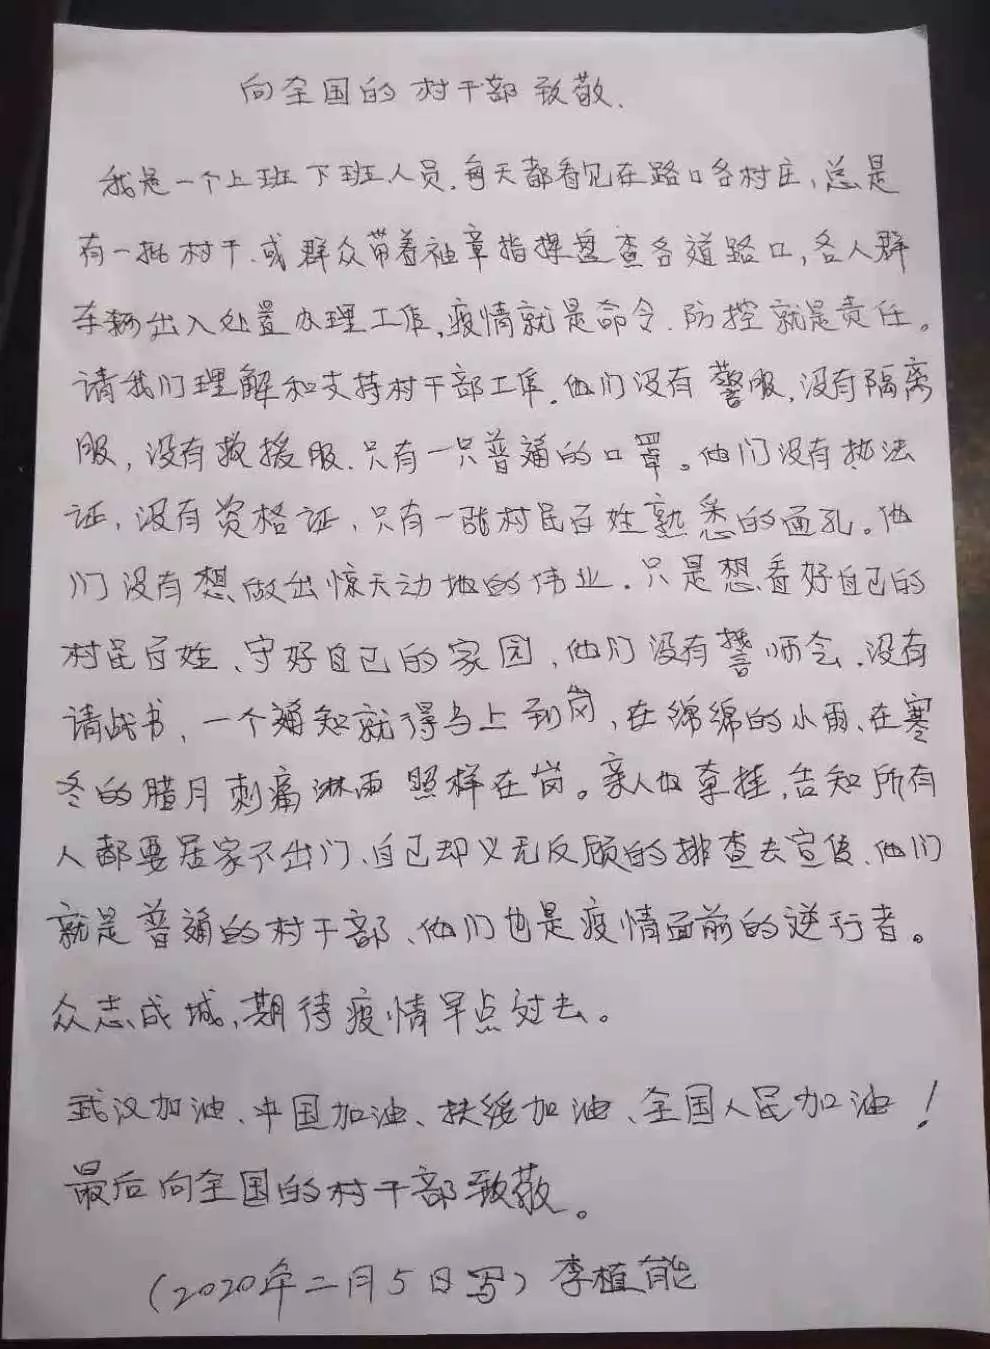 向全国的村干部致敬.
我是一个上班下班人员.每天都看见在路口各村庄,总是
有一批村干.或群众带着袖章指挥盘查各道路口,各人群
车辆出入处置办理工作,疫情就是命令.防控就是责任。
请我们理解和支持村干部工作.他们没有警服,没有隔离
服,没有救援服.只有一只普通的口罩。他们没有执法
证,没有资格证,只有一张村民百姓熟悉的面孔。他
们没有想做出惊天动地的伟业.只是想看好自己的
村民百姓、守好自己的家园,他们没有誓师会.没有
请战书、一个通知就得马上到岗,在绵绵的小雨、在寒
冬的腊月刺痛淋雨照样在岗。亲人牵挂,告知所有
人都要居家不出门、自己却义无反顾的排查去宣传.他们
就是普通的村干部、他们也是疫情面前的逆行者。
众志成城,期待疫情早点过去。
武汉加油、中国加油、扶绥加油、全国人民加油!
最后向全国的村干部致敬。
(2020年二月5日写)李植能